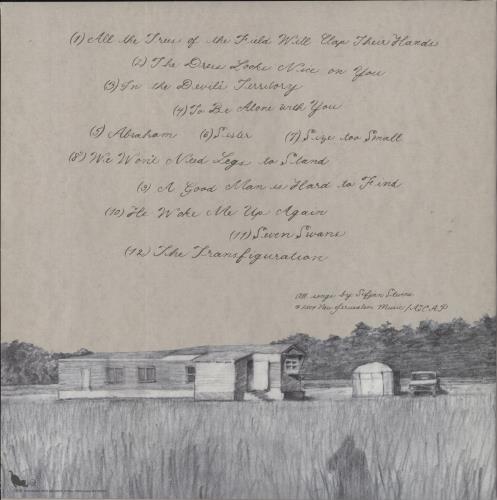 (1) All the Trees of the Field Will Clap Their Hands
(2) The Dress Looks Nice on You
(3) In the Devil's Territory
(4) To Be Alone with You
(5) Abraham (6) Sister (7) Size too Small
(8) We Won't Need Legs to Stand
(9) A Good Man is Hard to Find
(10) He Woke Me Up Again
(11) Seven Swans
(12) The Transfiguration
All songs by Sufjan Stevens
© 2004 New Jerusalem Music/ASCAP